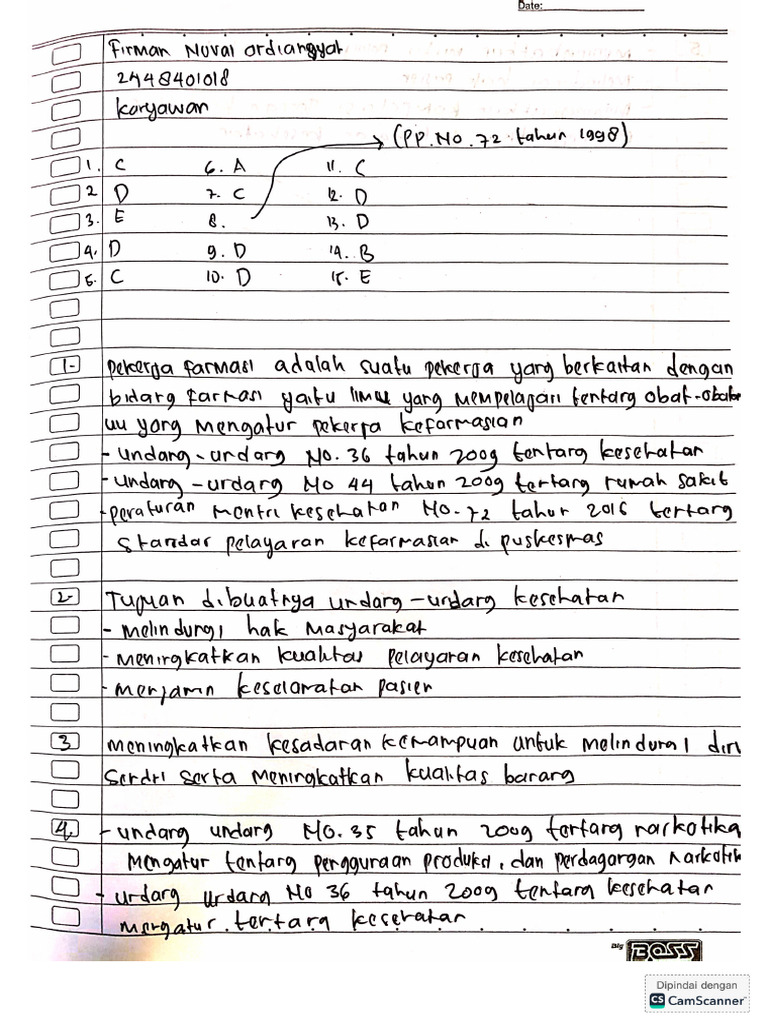 Date:
Firman Nuval Ordiansyah
2448401018
Karyawan
(PP. No. 72 tahun 1998)
1. C 6. A 11. C
2 D 7. C 12. D
3. E 8. 13. D
4. D 9. D 14. B
5. C 10. D 15. E
1- Pekerja farmasi adalah suatu pekerja yang berkaitan dengan
bidang farmasi yaitu ilmu yang mempelajari tentang obat-obatan
uu yang mengatur pekerja kefarmasian
- undang-undang No. 36 tahun 2009 tentang kesehatan
- undang-undang No 44 tahun 2009 tentang rumah sakit
- peraturan mentri kesehatan No. 72 tahun 2016 tentang
standar pelayanan kefarmasian di puskesmas
2 Tujuan dibuatnya undang-undang kesehatan
- melindungi hak masyarakat
- meningkatkan kualitas pelayanan kesehatan
- menjamin keselamatan pasien
3 meningkatkan kesadaran kemampuan untuk melindungi diri
sendri serta meningkatkan kualitas barang
4. - undang undang No. 35 tahun 2009 tentang narkotika
mengatur tentang penggunaan produksi, dan perdagangan narkotik
- undang undang No 36 tahun 2009 tentang kesehatan
mengatur tentang kesehatan
Big BOSS
Dipindai dengan
CS CamScanner